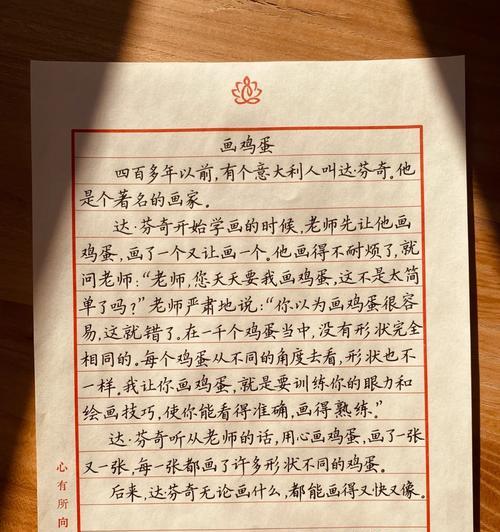 画鸡蛋
四百多年以前,有个意大利人叫达·芬奇。他
是个著名的画家。
达·芬奇开始学画的时候,老师先让他画
鸡蛋,画了一个又让画一个。他画得不耐烦了,就
问老师:“老师,您天天要我画鸡蛋,这不是太简
单了吗?”老师严肃地说:“你以为画鸡蛋很容
易,这就错了。在一千个鸡蛋当中,没有形状完全
相同的。每个鸡蛋从不同的角度去看,形状也不
一样。我让你画鸡蛋,就是要训练你的眼力和
绘画技巧,使你能看得准确,画得熟练。”
达·芬奇听从老师的话,用心画鸡蛋,画了一张
又一张,每一张都画了许多形状不同的鸡蛋。
后来,达·芬奇无论画什么,都能画得又快又像。
心有所向